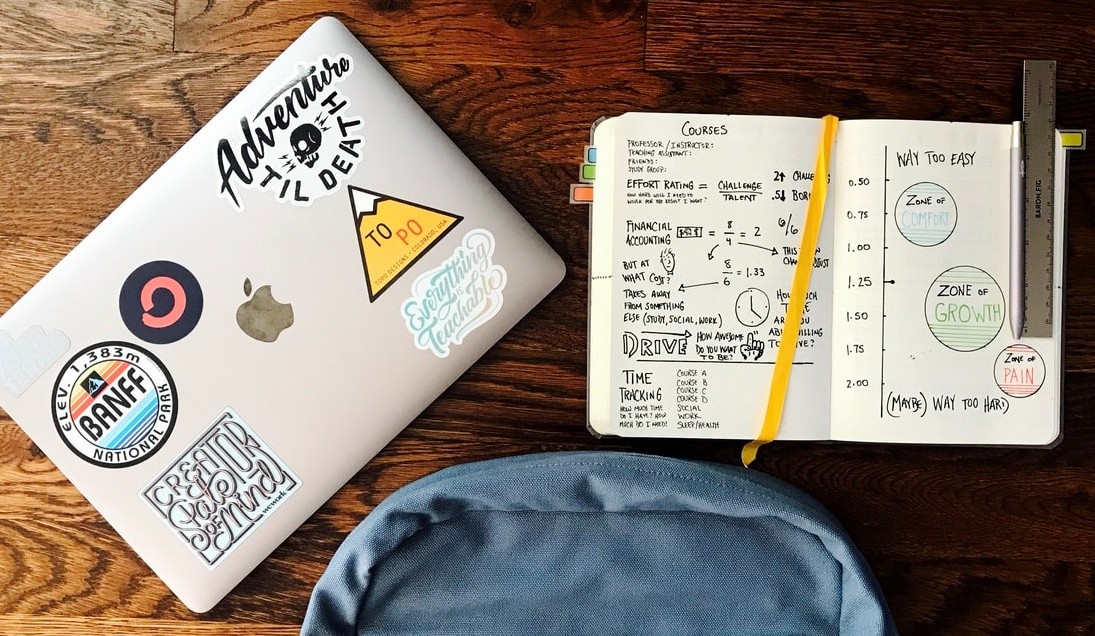 Adventure
'TIL DEATH
TO PO
TOPO DESIGNS • COLORADO, USA
Everything
is
Teachable
ELEV. 1,383m
BANFF
NATIONAL PARK
CREATOR
State
of Mind
wework
COURSES
PROFESSOR/INSTRUCTOR:
TEACHING ASSISTANT:
FRIENDS:
STUDY GROUP:
EFFORT RATING = CHALLENGE
TALENT
HOW HARD WILL I NEED TO
WORK FOR THE RESULT I WANT?
2↑
.5↓
FINANCIAL
ACCOUNTING
= 8
4
= 2
6/6
THIS
BUT AT
WHAT COST?
8
6
= 1.33
TAKES AWAY
FROM SOMETHING
ELSE (STUDY, SOCIAL, WORK)
HOW MUCH
TIME
ARE YOU
WILLING
TO GIVE?
DRIVE
HOW AWESOME
DO YOU WANT
TO BE?
TIME
TRACKING
HOW MUCH TIME
DO I HAVE? HOW
MUCH DO I NEED?
COURSE A
COURSE B
COURSE C
COURSE D
SOCIAL
WORK
SLEEP/HEALTH
WAY TOO EASY
0.50
0.75
1.00
1.25
1.50
1.75
2.00
ZONE OF
COMFORT
ZONE OF
GROWTH
ZONE OF
PAIN
(MAYBE) WAY TOO HARD
BARON FIG